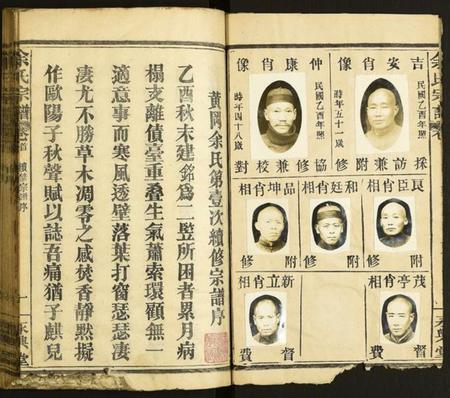 吉安肖像
民國乙酉年照
時年五十一歲
採訪兼附修
仲康肖像
民國乙酉年照
時年四十八歲
協修兼校對
良臣肖相
附修
和廷肖相
附修
品坤肖相
附修
茂亭肖相
督費
新立肖相
督費
永興堂
黃岡余氏第壹次續修宗譜序
乙酉秋末建銘為二監所困者累月病
榻支離債臺重疊生氣蕭索環顧無一
適意事而寒風透壁落葉打窗瑟瑟淒
淒尤不勝草木凋零之感焚香靜默擬
作歐陽子秋聲賦以誌吾痛猶子麒兒
余氏宗譜
卷首
續修宗譜序
一
永興堂